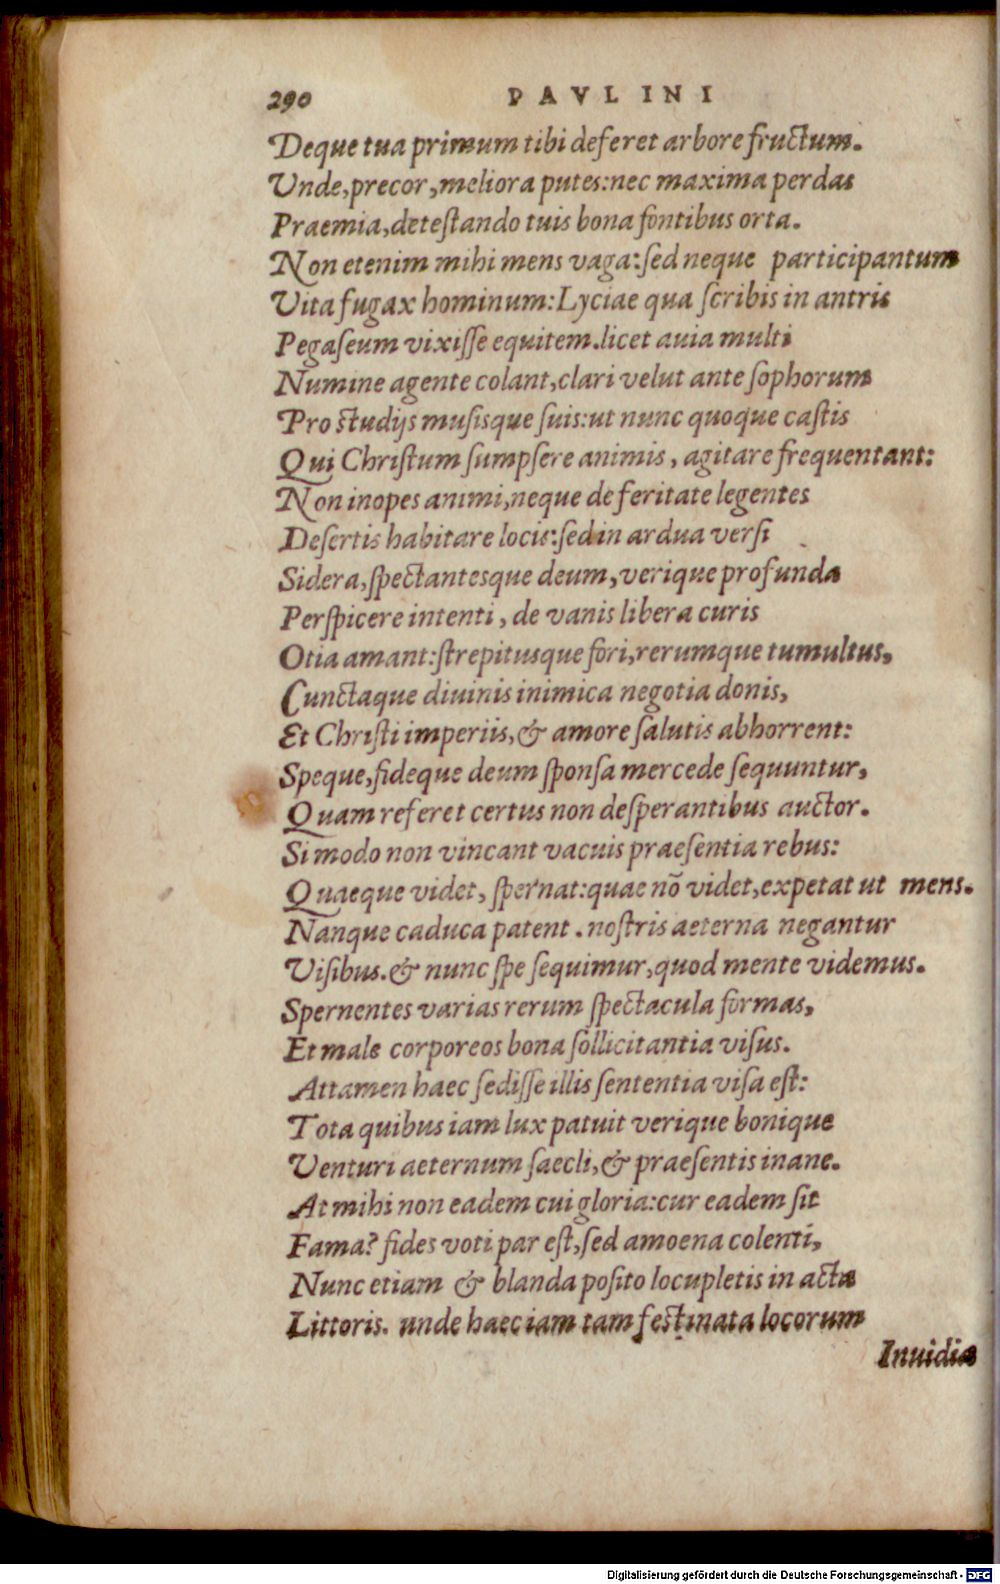 290 PAVLINI
Deque tua primum tibi deferet arbore fructum.
Unde, precor, meliora putes: nec maxima perdas
Praemia, deteſtando tuis bona fontibus orta.
Non etenim mihi mens vaga: ſed neque participantum
Vita fugax hominum: Lyciae qua ſcribis in antris
Pegaſeum vixiſſe equitem. licet auia multi
Numine agente colant, clari velut ante ſophorum
Pro ſtudijs muſisque ſuis: ut nunc quoque caſtis
Qui Chriſtum ſumpſere animis, agitare frequentant:
Non inopes animi, neque de feritate legentes
Deſertis habitare locis: ſed in ardua verſi
Sidera, ſpectantesque deum, verique profunda
Perſpicere intenti, de vanis libera curis
Otia amant: ſtrepitusque fori, rerumque tumultus,
Cunctaque diuinis inimica negotia donis,
Et Chriſti imperiis, & amore ſalutis abhorrent:
Speque, fideque deum ſponſa mercede ſequuntur,
Quam referet certus non deſperantibus auctor.
Si modo non vincant vacuis praeſentia rebus:
Quaeque videt, ſpernat: quae nō videt, expetat ut mens.
Nanque caduca patent. noſtris aeterna negantur
Viſibus. & nunc ſpe ſequimur, quod mente videmus.
Spernentes varias rerum ſpectacula formas,
Et male corporeos bona ſollicitantia viſus.
Attamen haec ſediſſe illis ſententia viſa eſt:
Tota quibus iam lux patuit verique bonique
Venturi aeternum ſaecli, & praeſentis inane.
At mihi non eadem cui gloria: cur eadem ſit
Fama? fides voti par eſt, ſed amoena colenti,
Nunc etiam & blanda poſito locupletis in acta
Littoris. unde haec iam tam feſtinata locorum
Inuidia
Digitalisierung gefördert durch die Deutsche Forschungsgemeinschaft - DFG